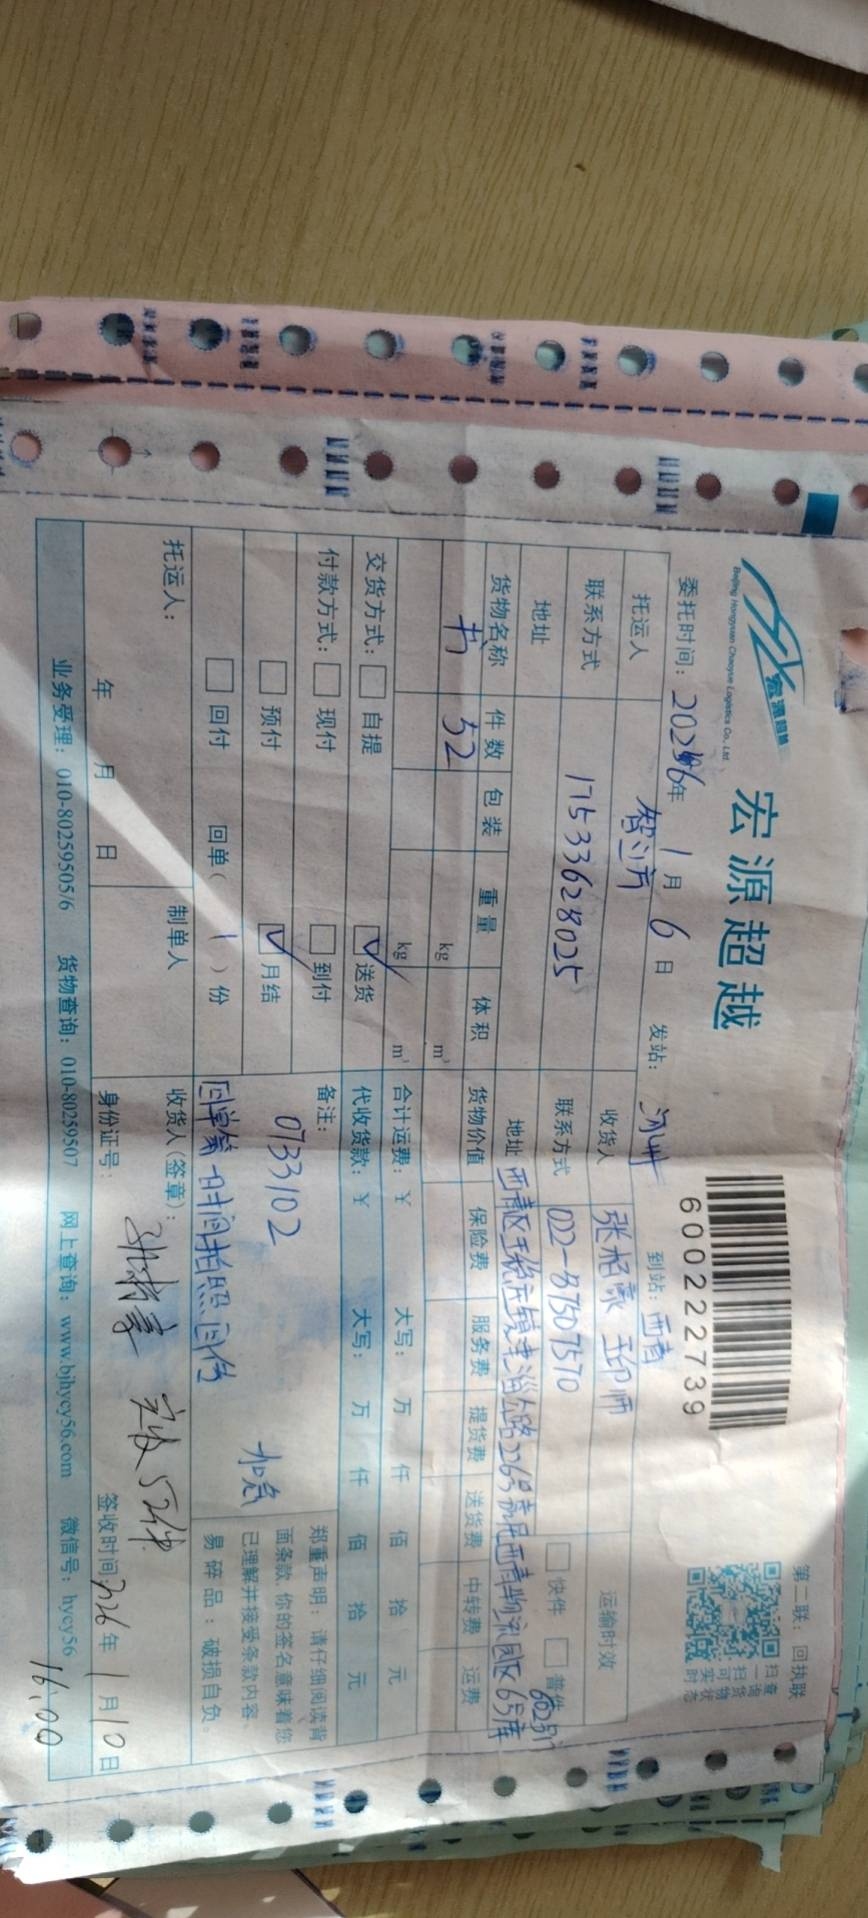 宏源超越
宏源超越
Beijing Hongyuan Chaoyue Logistics Co., Ltd.
第二联：回执联
600222739
扫一扫可买
查询货物状态
委托时间：2026年 1月 6日 发站： 到站：西青
托运人 智立方 收货人 张栢豪 运输时效
联系方式 17533628025 联系方式 022-87507570 快件 普件
地址 地址 西青区王稳庄镇津淄公路226号京邦西青物流园区6号库
货物名称 件数 包装 重量 体积 货物价值 保险费 服务费 提货费 送货费 中转费 运费
书 52 kg m³
kg m³ 合计运费：¥ 大写： 万 仟 佰 拾 元
交货方式： 自提 ✓送货 代收货款：¥ 大写： 万 仟 佰 拾 元
付款方式： 现付 到付 备注：
预付 ✓月结 0733102 加急
回付 回单（1）份 回单第一时间拍照回传
郑重声明：请仔细阅读背
面条款，你的签名意味着您
已理解并接受条款内容、
易碎品：破损自负。
托运人： 制单人 收货人(签章)： 实收52件
年 月 日 身份证号： 签收时间：2026年 1月10日
16:00
业务受理：010-80259505/6 货物查询：010-80259507 网上查询：www.bjhycy56.com 微信号：hycy56